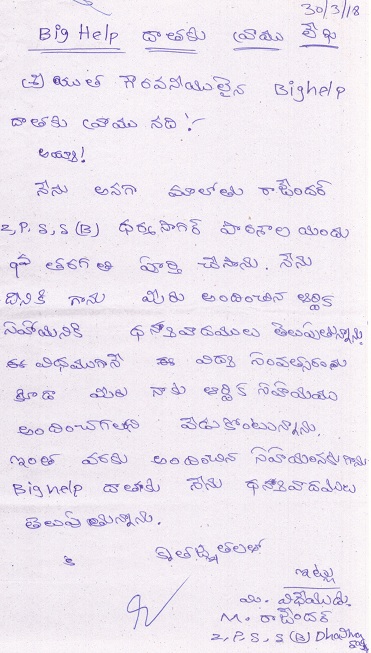 30/3/18
Big Help దాతకు వ్రాయు లేఖ
శ్రీయుత గౌరవనీయులైన Bighelp
దాతకు వ్రాయునది :-
అయ్యా!
నేను అనగా మాలోతు రాజేందర్
Z.P.S.S (B) ధర్మసాగర్ పాఠశాల యందు
9వ తరగతి పూర్తి చేసాను. నేను
దీనికి గాను మీరు అందించిన ఆర్థిక
సహాయానికి ధన్యవాదములు తెలుపుతున్నాను.
ఈ విధముగానే ఈ విద్యా సంవత్సరంను
కూడా మీరు నాకు ఆర్థిక సహాయము
అందించగలరని వేడుకోంటున్నాను.
ఇంత వరకు అందించిన సహాయమునకు గాను
Bighelp దాతకు నేను ధన్యవాదములు
తెలుపుతున్నాను.
కృతజ్ఞతలతో
ఇట్లు
మీ విధేయుడు.
M. రాజేందర్
Z.P.S.S (B) Dharma